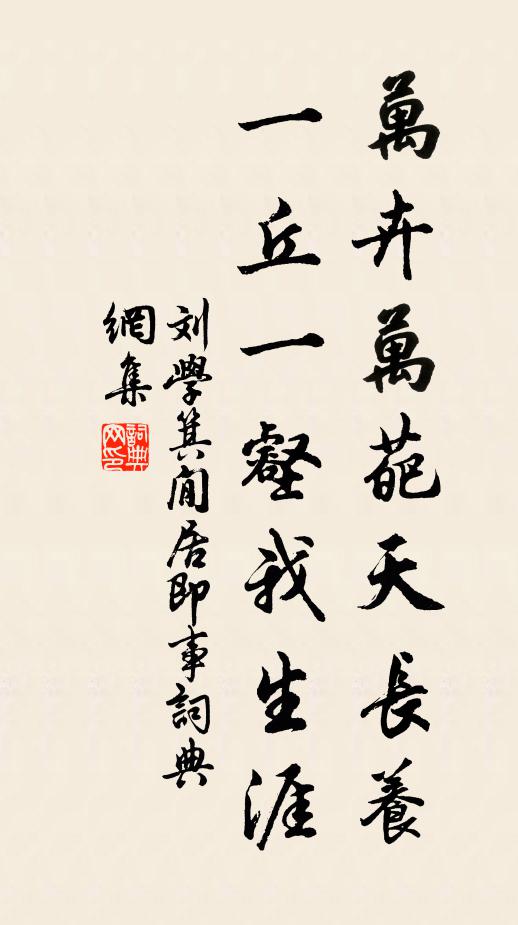 萬卉萬葩天長養
一丘一壑我生涯
刘學箕閒居即事詞典
網集
詞典网印